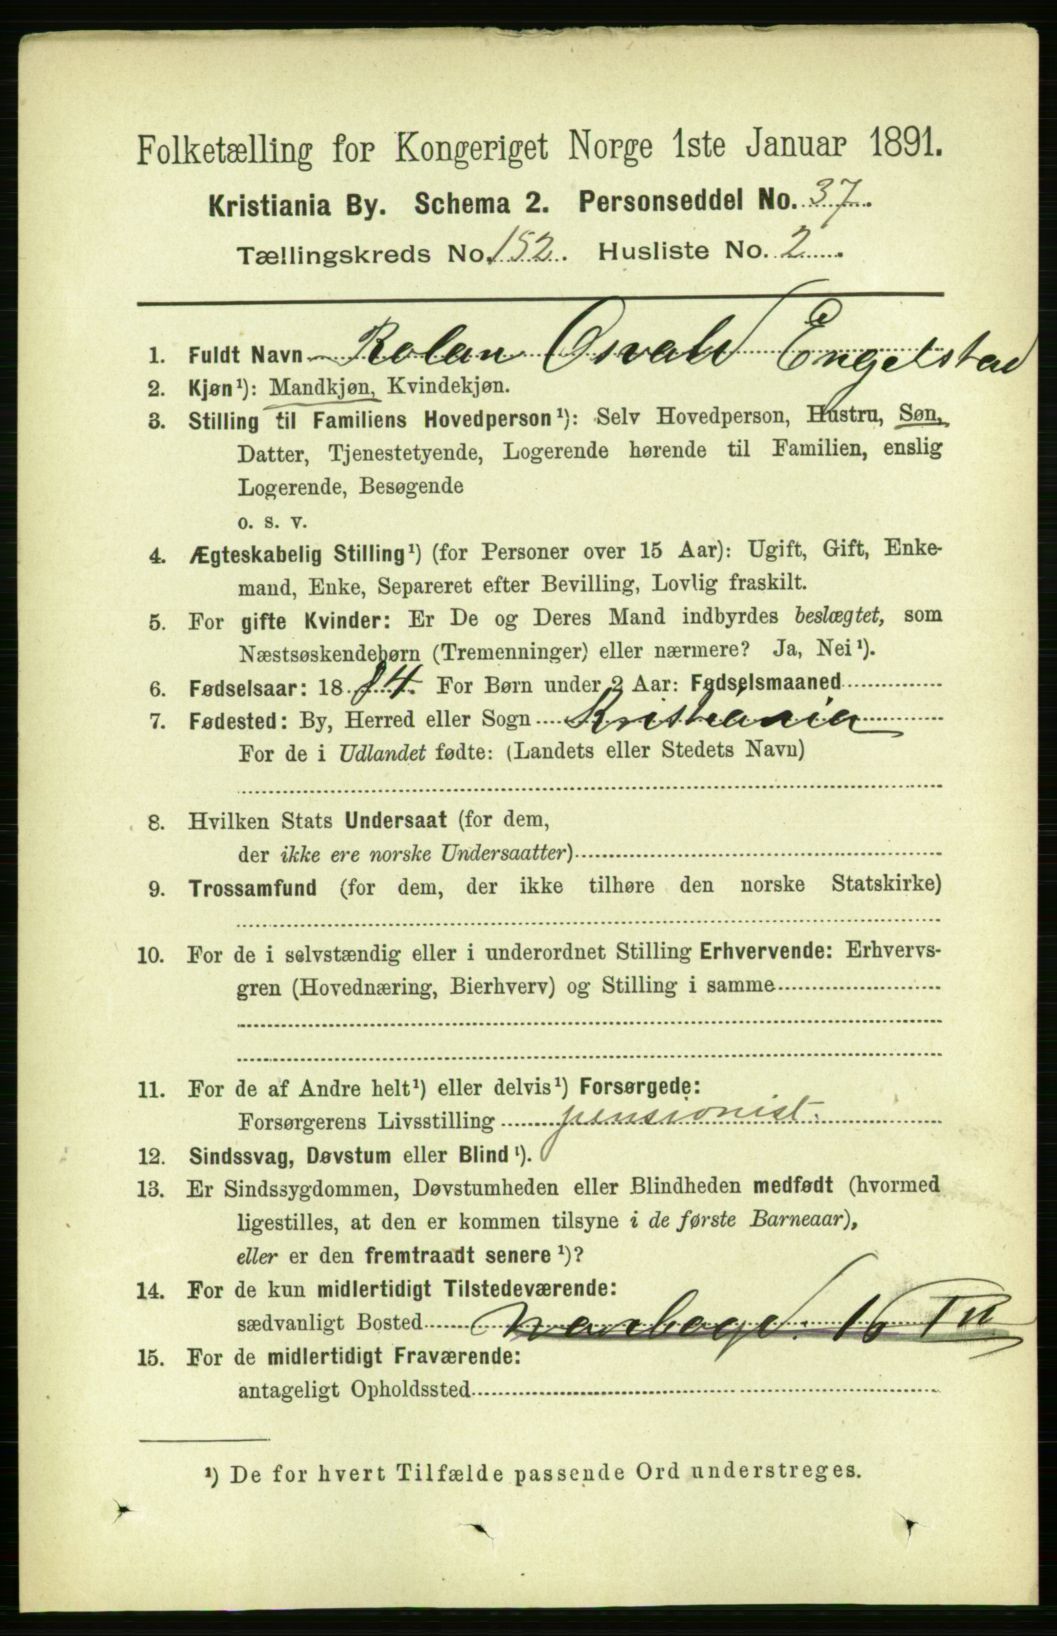 Folketælling for Kongeriget Norge 1ste Januar 1891.
Kristiania By. Schema 2. Personseddel No. 37.
Tællingskreds No. 152. Husliste No. 2.
1. Fuldt Navn Rolan Osvald Engelstad
2. Kjøn¹): Mandkjøn, Kvindekjøn.
3. Stilling til Familiens Hovedperson¹): Selv Hovedperson, Hustru, Søn,
Datter, Tjenestetyende, Logerende hørende til Familien, enslig
Logerende, Besøgende
o. s. v.
4. Ægteskabelig Stilling¹) (for Personer over 15 Aar): Ugift, Gift, Enke-
mand, Enke, Separeret efter Bevilling, Lovlig fraskilt.
5. For gifte Kvinder: Er De og Deres Mand indbyrdes beslægtet, som
Næstsøskendebørn (Tremenninger) eller nærmere? Ja, Nei¹).
6. Fødselsaar: 1884. For Børn under 2 Aar: Fødselsmaaned
7. Fødested: By, Herred eller Sogn Kristiania
For de i Udlandet fødte: (Landets eller Stedets Navn)
8. Hvilken Stats Undersaat (for dem,
der ikke ere norske Undersaatter)
9. Trossamfund (for dem, der ikke tilhøre den norske Statskirke)
10. For de i selvstændig eller i underordnet Stilling Erhvervende: Erhvervs-
gren (Hovednæring, Bierhverv) og Stilling i samme
11. For de af Andre helt¹) eller delvis¹) Forsørgede:
Forsørgerens Livsstilling pensionist.
12. Sindssvag, Døvstum eller Blind¹).
13. Er Sindssygdommen, Døvstumheden eller Blindheden medfødt (hvormed
ligestilles, at den er kommen tilsyne i de første Barneaar),
eller er den fremtraadt senere¹)?
14. For de kun midlertidigt Tilstedeværende:
sædvanligt Bosted 16
15. For de midlertidigt Fraværende:
antageligt Opholdssted
¹) De for hvert Tilfælde passende Ord understreges.